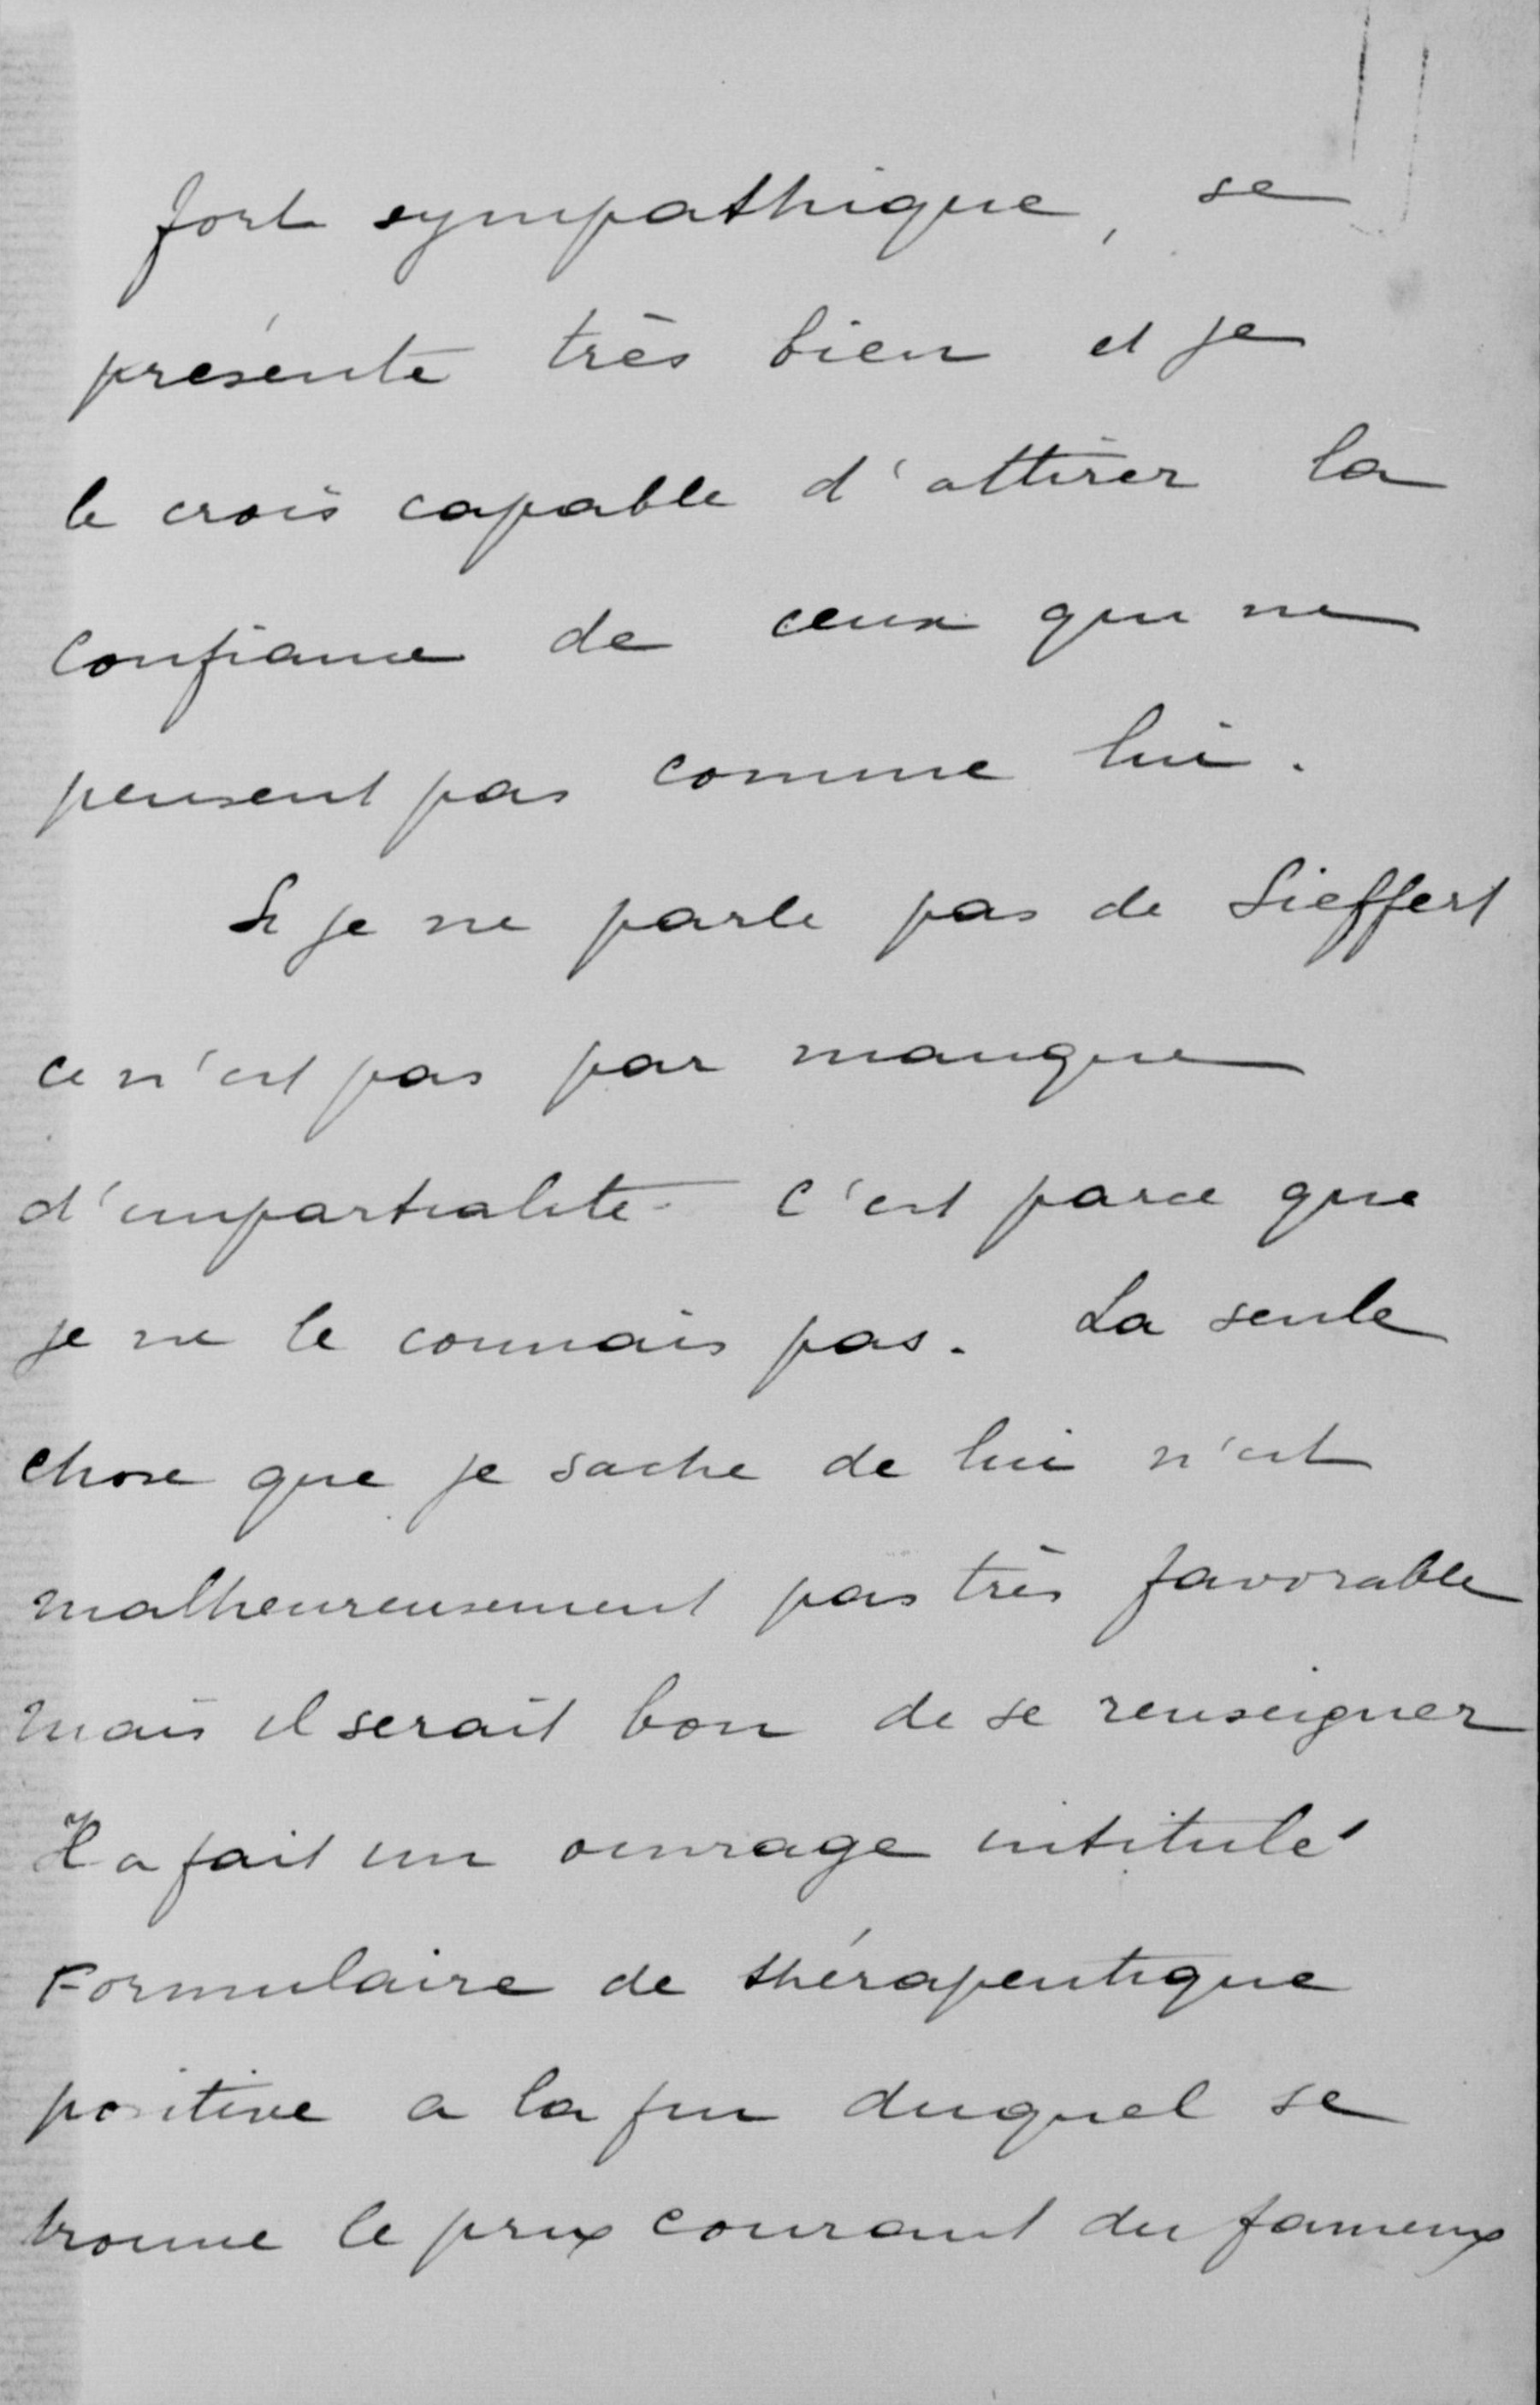 fort sympathique, se
présente très bien et je
le crois capable d'attirer la
confiance de ceux qui ne
pensent pas comme lui.
Si je ne parle pas de Sieffert
ce n'est pas par manque
d'impartialité c'est parce que
je ne le connais pas. La seule
chose que je sache de lui n'est
malheureusement pas très favorable
mais il serait bon de se renseigner
Il a fait un ouvrage intitulé
Formulaire de thérapeutique
positive a la fin duquel se
trouve le prix courant du fameux